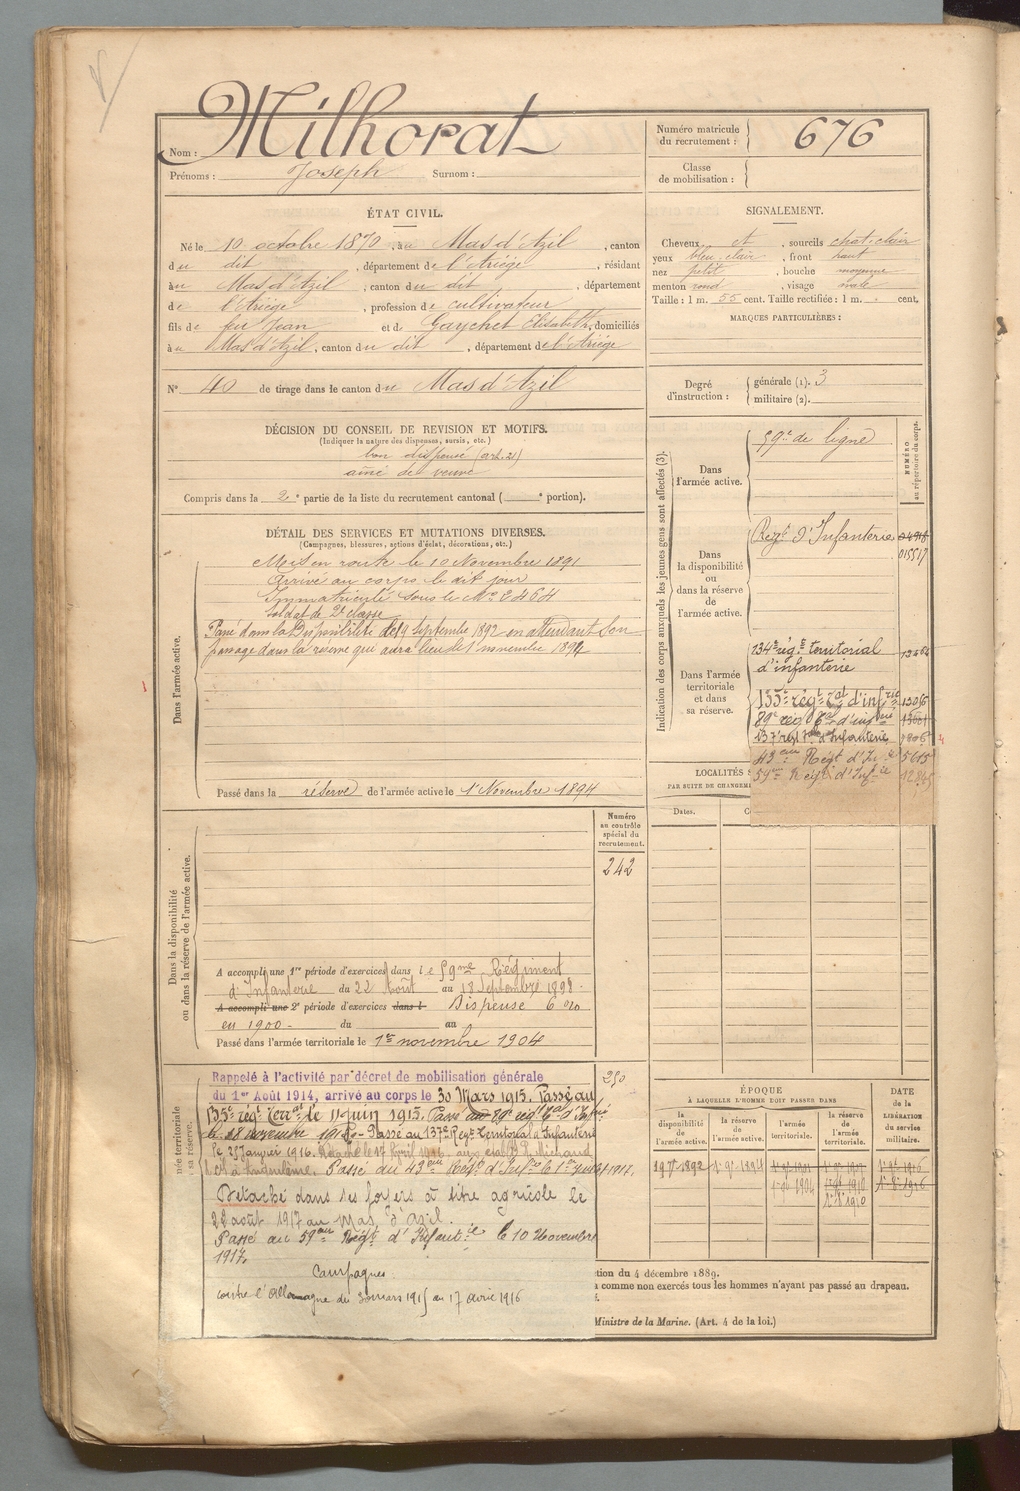 Nom : Milhorat
Prénoms : Joseph Surnom :
Numéro matricule du recrutement : 676
Classe de mobilisation :
ÉTAT CIVIL.
Né le 10 octobre 1870, à u Mas d'Azil, canton
d u dit, département de l'Ariège, résidant
à u Mas d'Azil, canton d u dit, département
de l'Ariège, profession de cultivateur
fils de feu Jean et de Gaychet Elisabeth, domiciliés
à u Mas d'Azil, canton d u dit, département de l'Ariège
N° 40 de tirage dans le canton d u Mas d'Azil
SIGNALEMENT.
Cheveux et, sourcils chat. clair
yeux bleu clair, front haut
nez petit, bouche moyenne
menton rond, visage ovale
Taille : 1 m. 55 cent. Taille rectifiée : 1 m. cent.
MARQUES PARTICULIÈRES :
Degré d'instruction : générale (1). 3
militaire (2).
DÉCISION DU CONSEIL DE REVISION ET MOTIFS.
(Indiquer la nature des dispenses, sursis, etc.)
bon dispensé (art. 21)
ainé de veuve
Compris dans la 2e partie de la liste du recrutement cantonal ( e portion).
DÉTAIL DES SERVICES ET MUTATIONS DIVERSES.
(Campagnes, blessures, actions d'éclat, décorations, etc.)
Dans l'armée active.
Mis en route le 10 Novembre 1891
Arrivé au corps le dit jour
Immatriculé sous le No 2464
Soldat de 2e classe
Passé dans la Disponibilité le 19 Septembre 1892 en attendant son
passage dans la réserve qui aura lieu le 1er novembre 1894
Passé dans la réserve de l'armée active le 1er Novembre 1894
Indication des corps auxquels les jeunes gens sont affectés (3).
NUMÉRO au répertoire du corps.
Dans l'armée active.
59e de ligne
Dans la disponibilité ou dans la réserve de l'armée active.
Regt d'Infanterie
015517
Dans l'armée territoriale et dans sa réserve.
134e rég.t territorial
d'infanterie
135e régt tal d'infrie 13066
89e régt tal d'infrie
137e régt tal d'Infanterie
43eme Régt d'Infie 5615
59e Régt d'Infie
LOCALITÉS
PAR SUITE DE CHANGEM
Dates.
Dans la disponibilité ou dans la réserve de l'armée active.
Numéro au contrôle spécial du recrutement.
242
A accompli une 1re période d'exercices dans le 59me Régiment
d'Infanterie du 22 Août au 18 Septembre 1898.
A accompli une 2e période d'exercices dans l Dispense 6 %
en 1900 - du au
Passé dans l'armée territoriale le 1er novembre 1904
née territoriale
sa réserve.
250
Rappelé à l'activité par décret de mobilisation générale
du 1er Août 1914, arrivé au corps le 30 Mars 1915. Passé au
135e régt Terral le 11 juin 1915. Passé au 89e régt tal d'Infie
le 18 novembre 1915. Passé au 137e Regt Territorial d'Infanterie
le 25 Janvier 1916. Détaché le 17 Avril 1916, aux etabl.ts Michaud
à Angoulême. Passé au 43eme Régt d'Infie le 1er Juillet 1917.
Détaché dans ses foyers à titre agricole le
22 août 1917 au Mas d'Azil.
Passé au 59eme Régt d'Infantie le 10 Novembre
1917.
Campagnes.
contre l'Allemagne du 30 mars 1915 au 17 avril 1916
ÉPOQUE
À LAQUELLE L'HOMME DOIT PASSER DANS
la disponibilité de l'armée active.
la réserve de l'armée active.
l'armée territoriale.
la réserve de l'armée territoriale.
DATE de la LIBÉRATION du service militaire.
ction du 4 décembre 1889.
a comme non exercés tous les hommes n'ayant pas passé au drapeau.
Ministre de la Marine. (Art. 4 de la loi.)